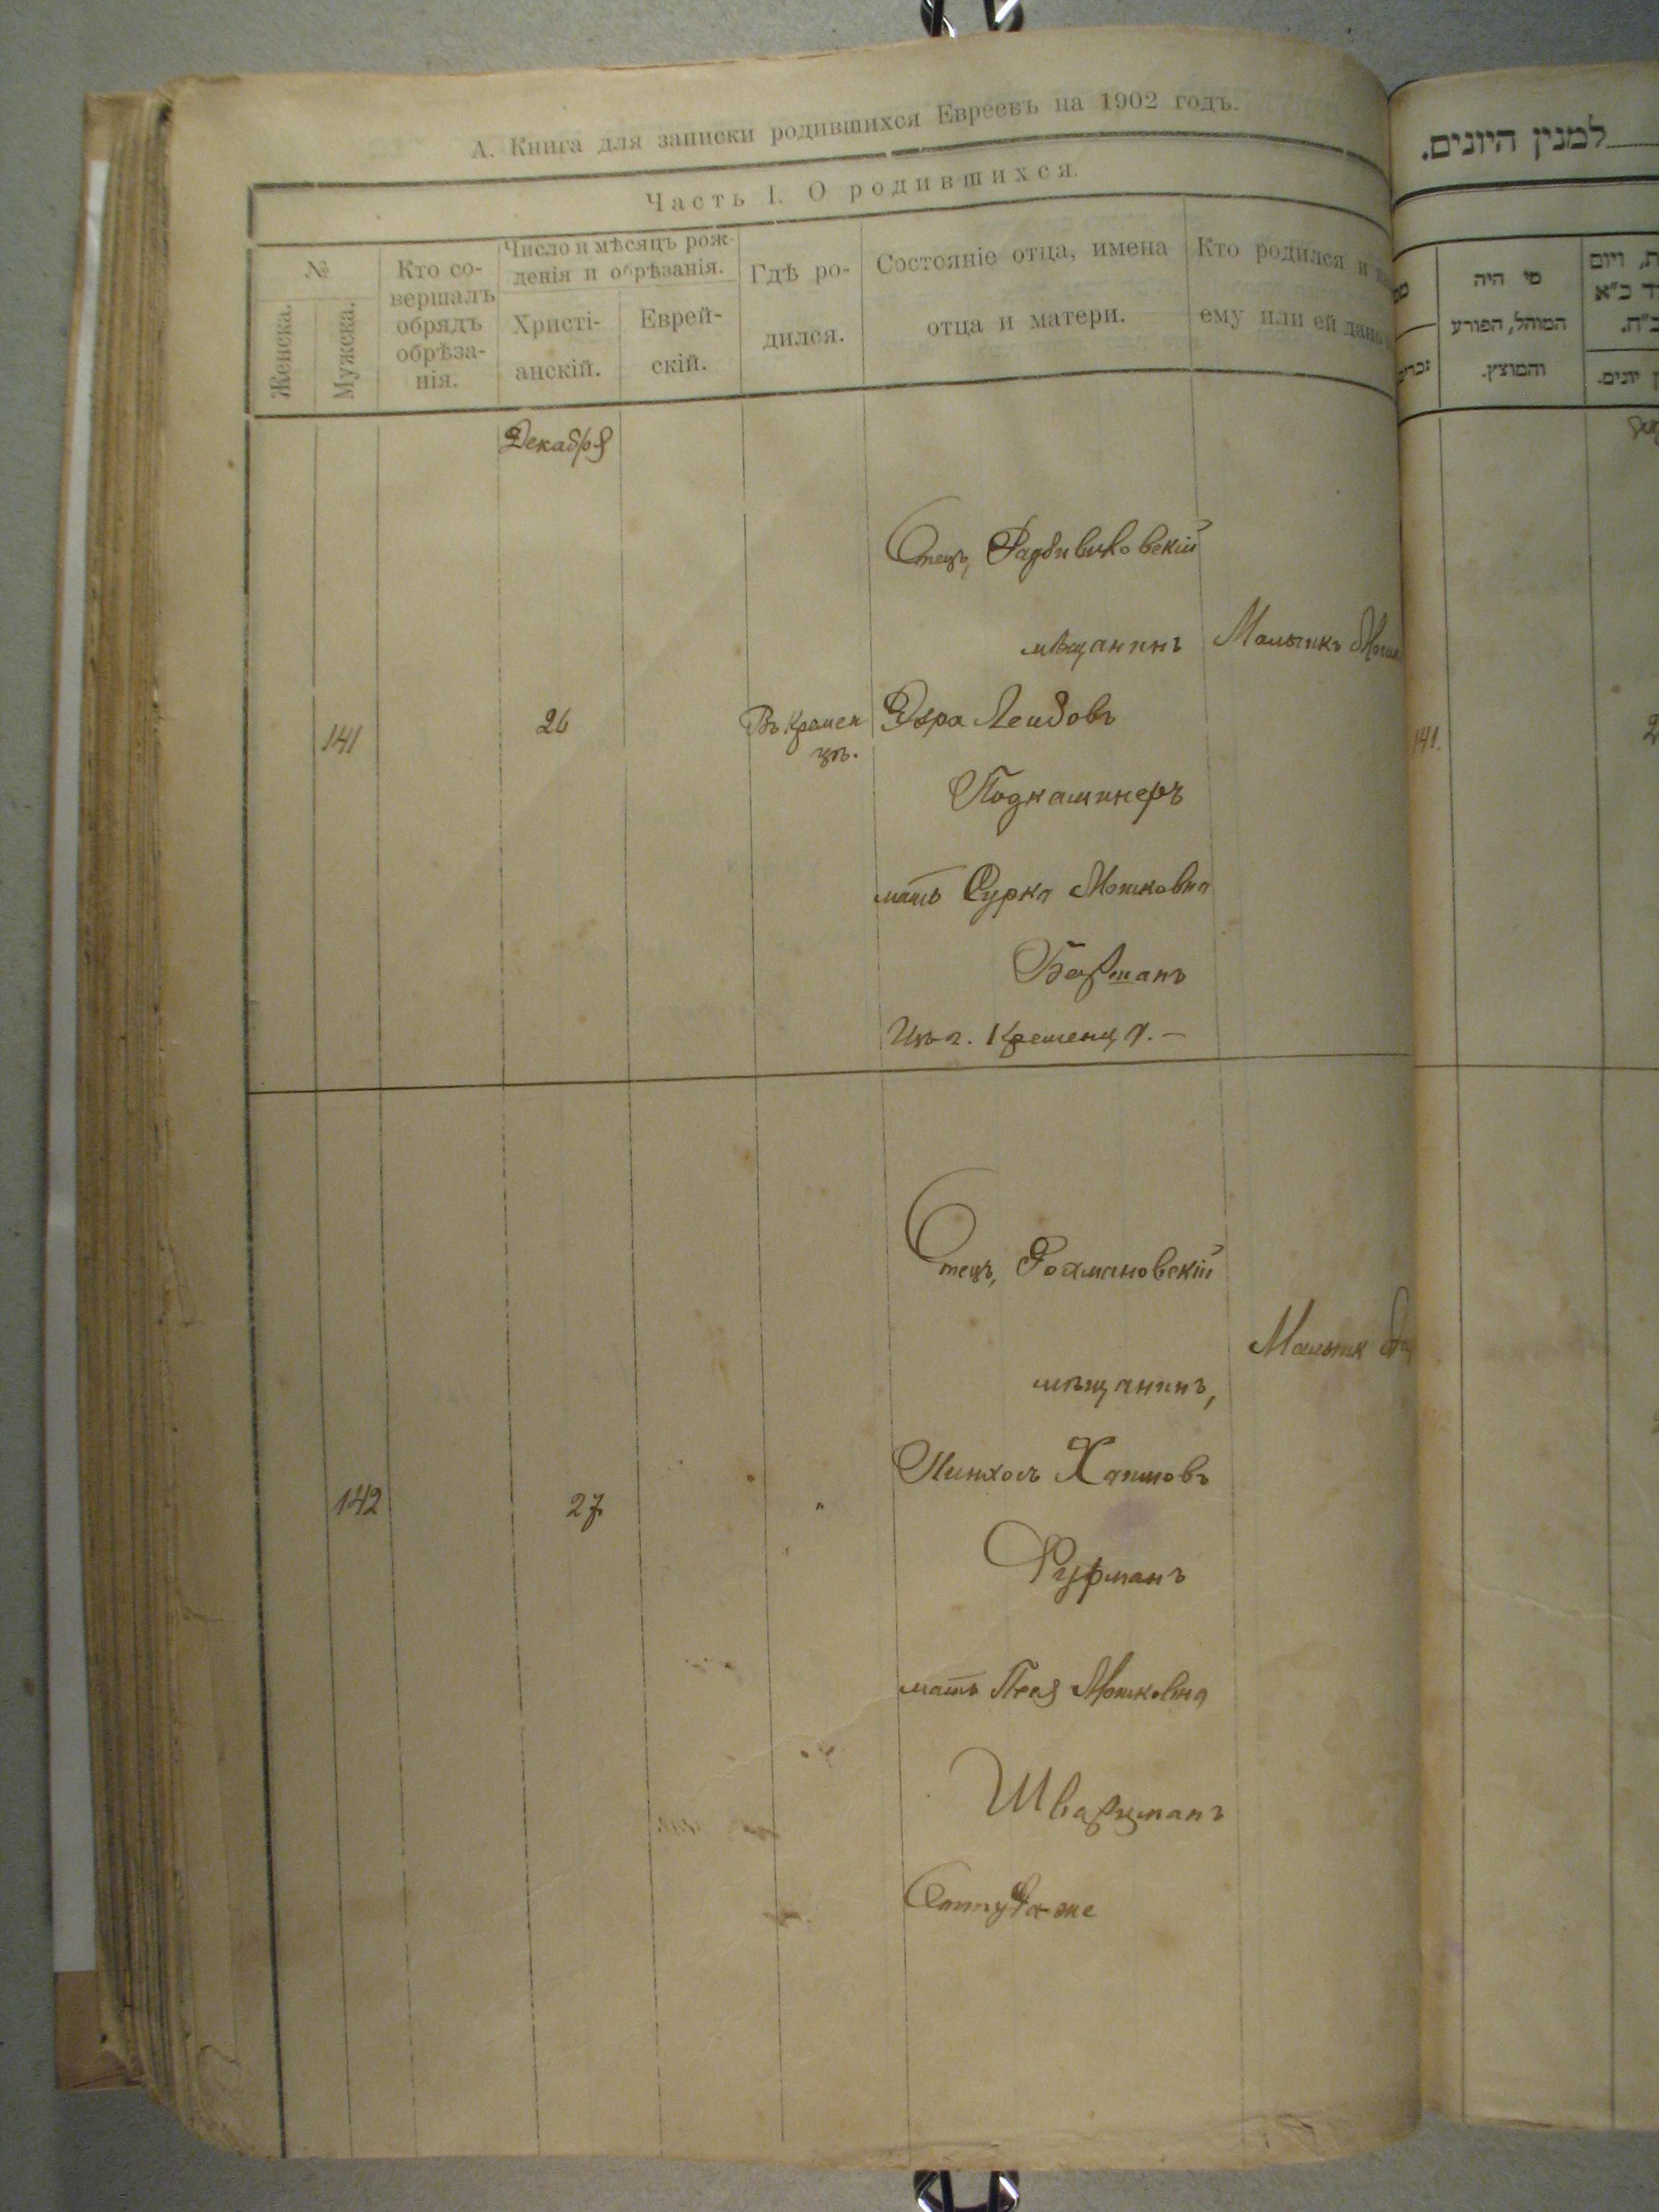 А. Книга для записки родившихся Евреевъ на 1902 годъ.
Часть I. О родившихся.
№
Женска.
Мужска.
Кто со-
вершалъ
обрядъ
обрѣза-
нія.
Число и мѣсяцъ рож-
денія и обрѣзанія.
Христі-
анскій.
Еврей-
скій.
Гдѣ ро-
дился.
Состояніе отца, имена
отца и матери.
Кто родился и
ему или ей дано
Декабря
141
26
Въ Кремен
цѣ.
Отецъ,
мѣщанинъ
Лейбовъ
Подкаминеръ
мать Сурка Мошковна
Из г. Кременца.—
Мальчикъ
142
27
"
Отецъ, Рохмановскій
мѣщанинъ,
Пинхосъ Хаимовъ
Фурманъ
мать Песя Мошковна
Шварцманъ
Оттуда-же
Мальчик
למנין היונים.
מי היה
המוהל, הפורע
והמוצץ.
141.